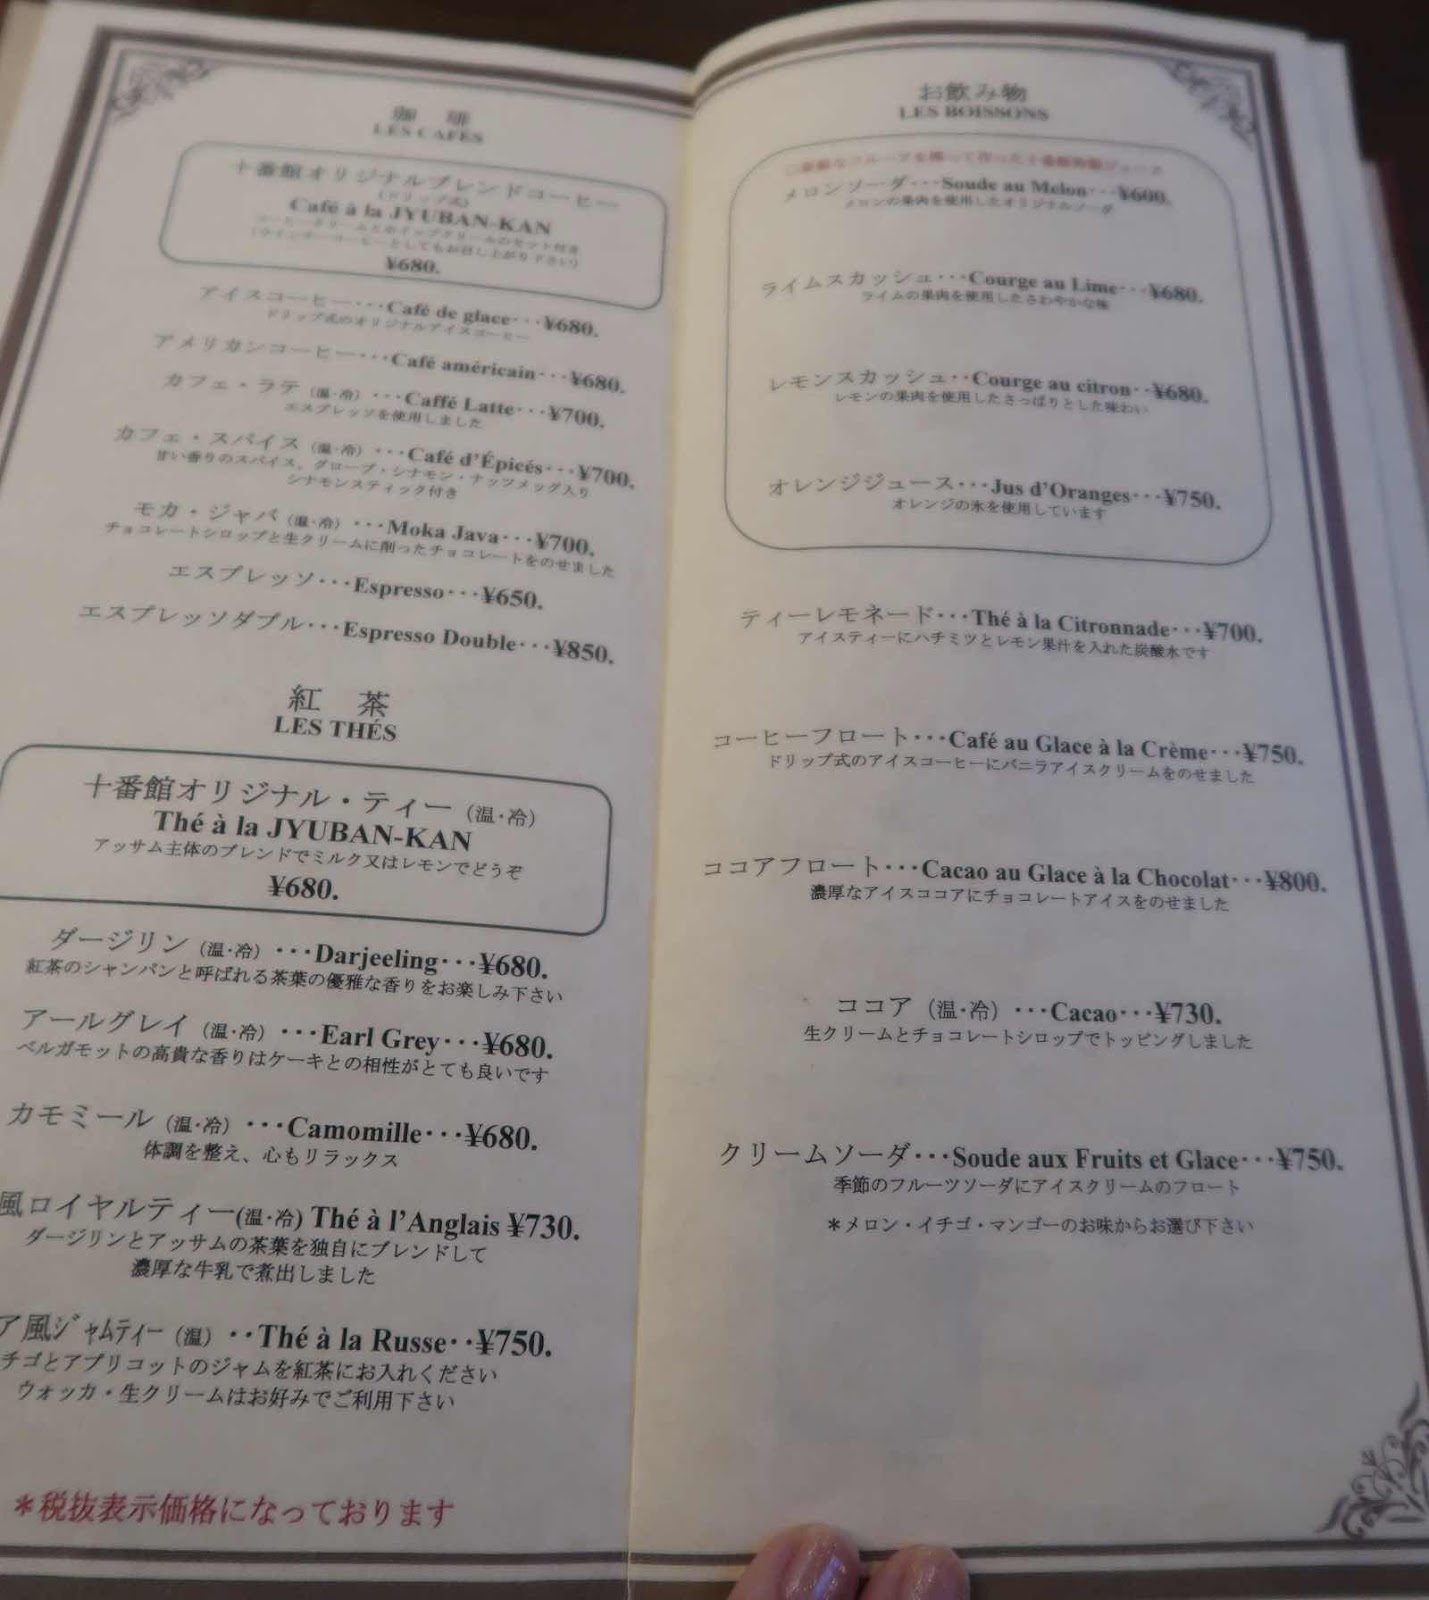 珈 琲
LES CAFÉS
十番館オリジナルブレンドコーヒー
(ドリップ式)
Café à la JYUBAN-KAN
コーヒークリームとホイップクリームのセット付き
(ウインナーコーヒーとしてもお召し上がり下さい)
¥680.
アイスコーヒー・・・Café de glace・・・¥680.
ドリップ式のオリジナルアイスコーヒー
アメリカンコーヒー・・・Café américain・・・¥680.
カフェ・ラテ (温・冷) ・・・Caffé Latte・・・¥700.
エスプレッソを使用しました
カフェ・スパイス (温・冷) ・・・Café d'Épicés・・・¥700.
甘い香りのスパイス、グローブ・シナモン・ナッツメッグ入り
シナモンスティック付き
モカ・ジャバ (温・冷) ・・・Moka Java・・・¥700.
チョコレートシロップと生クリームに削ったチョコレートをのせました
エスプレッソ・・・Espresso・・・¥650.
エスプレッソダブル・・・Espresso Double・・・¥850.
紅 茶
LES THÉS
十番館オリジナル・ティー (温・冷)
Thé à la JYUBAN-KAN
アッサム主体のブレンドでミルク又はレモンでどうぞ
¥680.
ダージリン (温・冷) ・・・Darjeeling・・・¥680.
紅茶のシャンパンと呼ばれる茶葉の優雅な香りをお楽しみ下さい
アールグレイ (温・冷) ・・・Earl Grey・・・¥680.
ベルガモットの高貴な香りはケーキとの相性がとても良いです
カモミール (温・冷) ・・・Camomille・・・¥680.
体調を整え、心もリラックス
風ロイヤルティー(温・冷) Thé à l'Anglais ¥730.
ダージリンとアッサムの茶葉を独自にブレンドして
濃厚な牛乳で煮出しました
ア風ジャムティー (温) ・・Thé à la Russe・・¥750.
チゴとアプリコットのジャムを紅茶にお入れください
ウォッカ・生クリームはお好みでご利用下さい
＊税抜表示価格になっております
お飲み物
LES BOISSONS
フルーツを搾って作った十番館特製ジュース
メロンソーダ・・・Soude au Melon・・・¥600.
メロンの果肉を使用したオリジナルソーダ
ライムスカッシュ・・・Courge au Lime・・・¥680.
ライムの果肉を使用したさわやかな味
レモンスカッシュ・・Courge au citron・・¥680.
レモンの果肉を使用したさっぱりとした味わい
オレンジジュース・・・Jus d'Oranges・・・¥750.
オレンジの氷を使用しています
ティーレモネード・・・Thé à la Citronnade・・・¥700.
アイスティーにハチミツとレモン果汁を入れた炭酸水です
コーヒーフロート・・・Café au Glace à la Crème・・・¥750.
ドリップ式のアイスコーヒーにバニラアイスクリームをのせました
ココアフロート・・・Cacao au Glace à la Chocolat・・・¥800.
濃厚なアイスココアにチョコレートアイスをのせました
ココア (温・冷) ・・・Cacao・・・¥730.
生クリームとチョコレートシロップでトッピングしました
クリームソーダ・・・Soude aux Fruits et Glace・・・¥750.
季節のフルーツソーダにアイスクリームのフロート
＊メロン・イチゴ・マンゴーのお味からお選び下さい